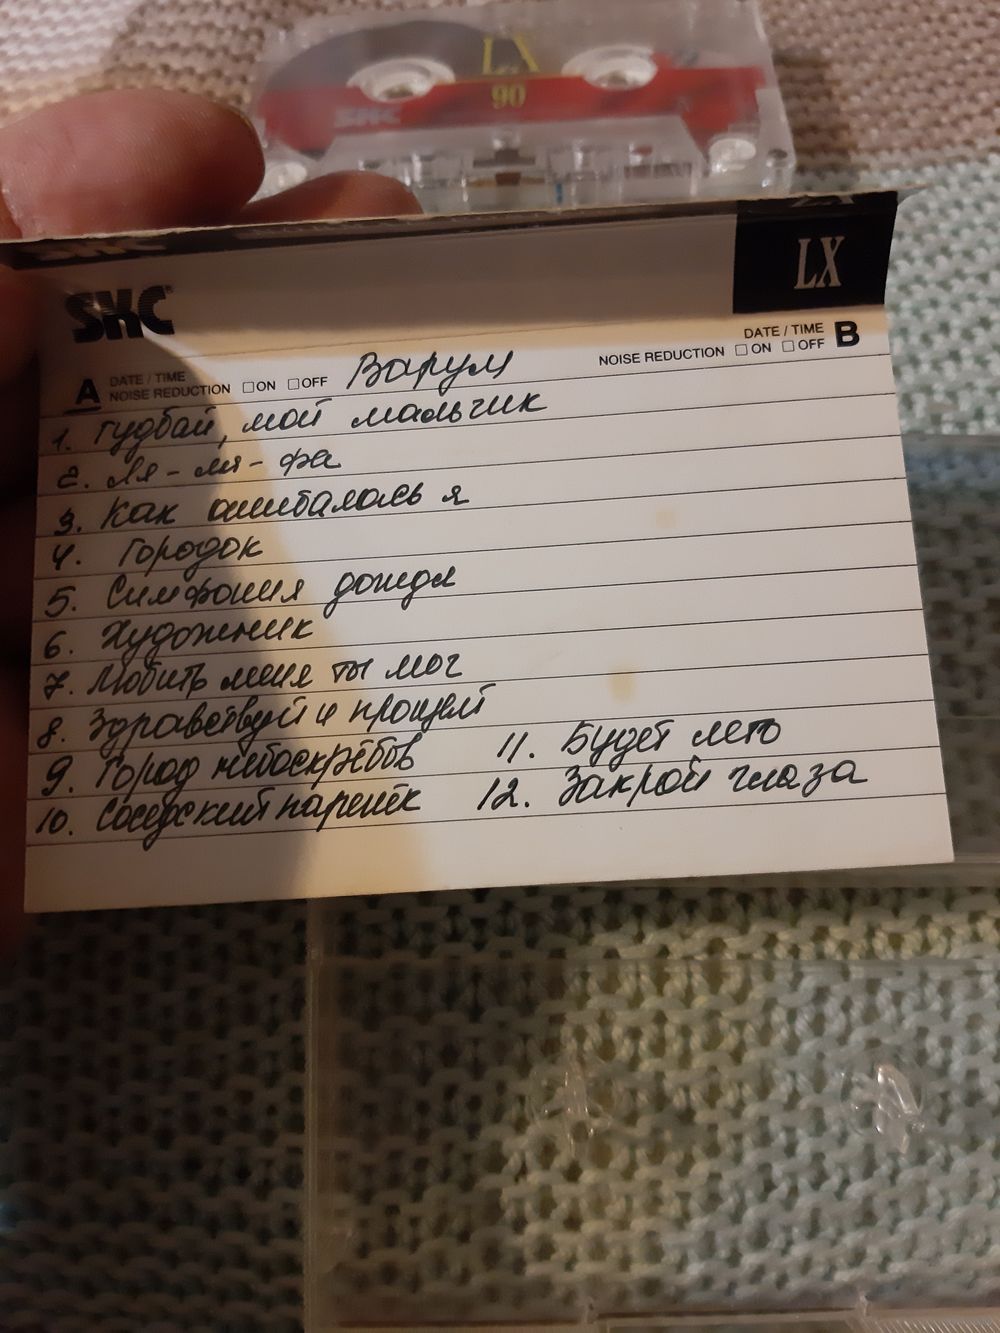 LX
90
SKC
SKC
LX
SKC
A DATE / TIME
NOISE REDUCTION □ ON □ OFF Варум
DATE / TIME B
NOISE REDUCTION □ ON □ OFF
1. Гудбай, мой мальчик
2. Ля-ля-фа
3. Как ошибалась я
4. Городок
5. Симфония дождя
6. Художник
7. Любить меня ты мог
8. Здравствуй и прощай
9. Город небоскрёбов
10. Соседский паренёк
11. Будет лето
12. Закрой глаза